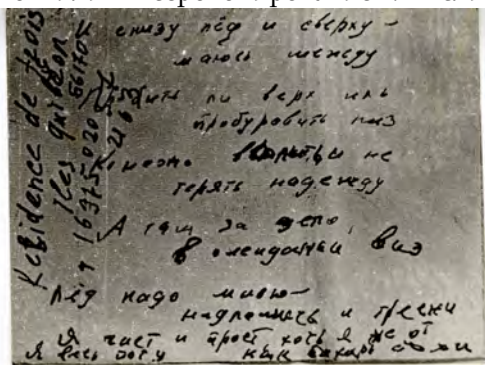 И снизу лёд и сверху –
маюсь между
Пробить ли верх иль
пробуравить низ
Конечно всплыть и не
терять надежду
А там за дело
в ожидании виз
Лёд надо мною –
надломись и тресни
Я чист и прост хоть я не от сохи
Я весь в поту как пахарь
Residence de trois
Iles quiberon
56170